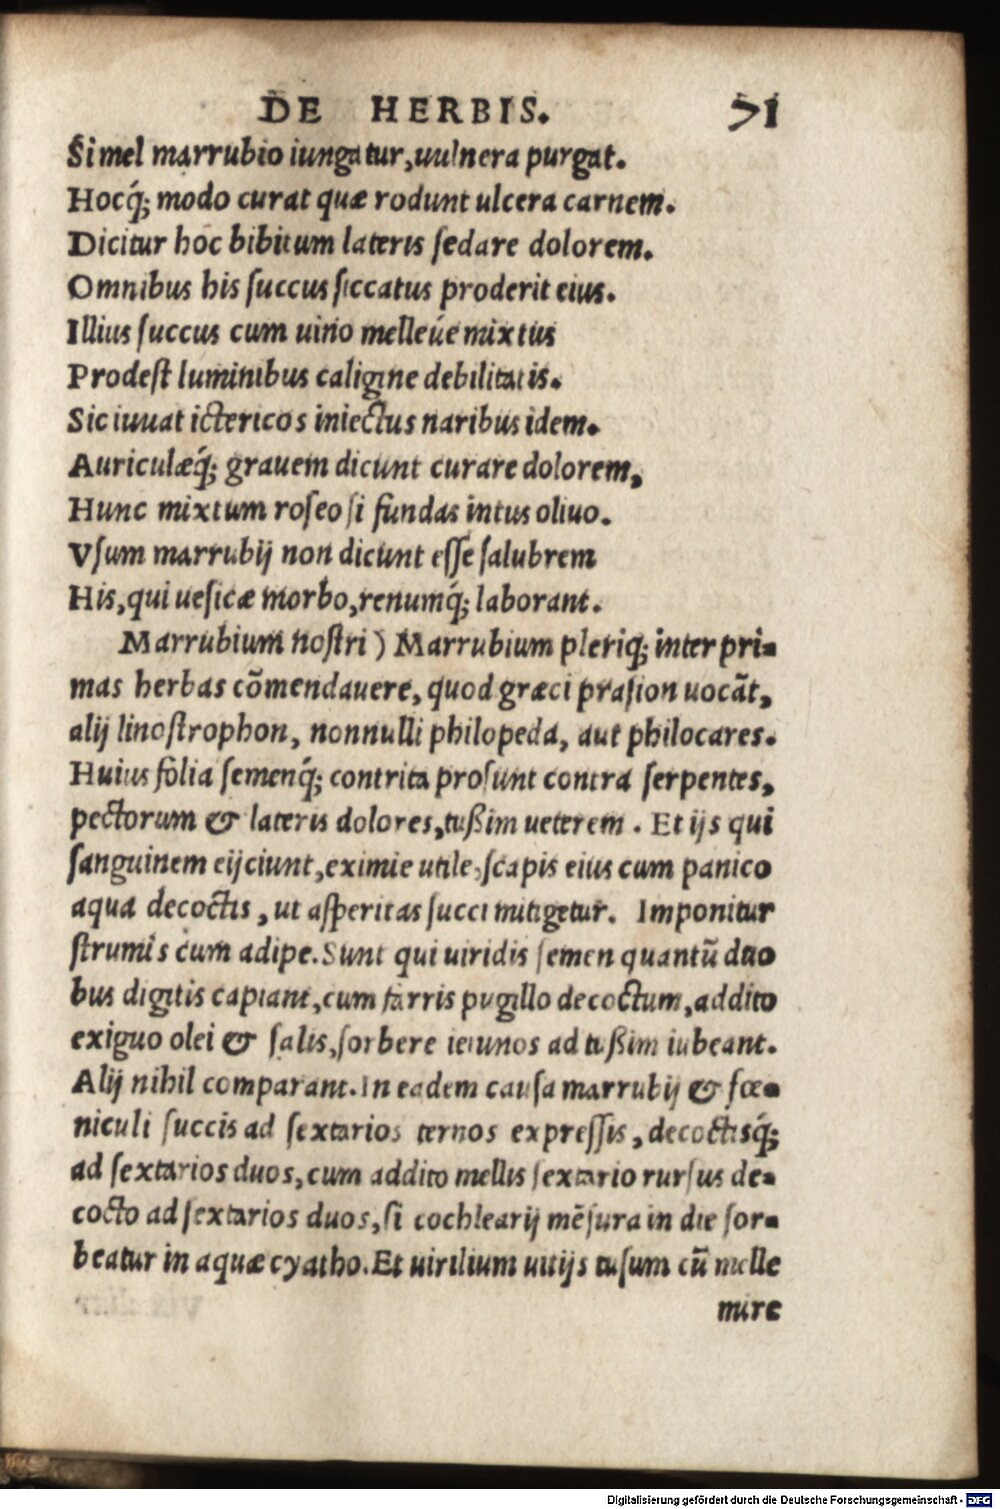 DE HERBIS. 71
Si mel marrubio iungatur, uulnera purgat.
Hocq́; modo curat quæ rodunt ulcera carnem.
Dicitur hoc bibitum lateris ſedare dolorem.
Omnibus his ſuccus ſiccatus proderit eius.
Illius ſuccus cum uino melleúe mixtus
Prodeſt luminibus caligine debilitatis.
Sic iuuat ictericos iniectus naribus idem.
Auriculæq́; grauem dicunt curare dolorem,
Hunc mixtum roſeo ſi fundas intus oliuo.
Vſum marrubij non dicunt eſſe ſalubrem
His, qui ueſicæ morbo, renumq́; laborant.
Marrubium noſtri) Marrubium pleriq; inter pri-
mas herbas cōmendauere, quod græci praſion uocāt,
alij linoſtrophon, nonnulli philopeda, aut philocares.
Huius folia ſemenq́; contrita proſunt contra ſerpentes,
pectorum & lateris dolores, tußim ueterem. Et ijs qui
ſanguinem eijciunt, eximie utile, ſcapis eius cum panico
aqua decoctis, ut aſperitas ſucci mitigetur. Imponitur
ſtrumis cum adipe. Sunt qui uiridis ſemen quantū duo
bus digitis capiant, cum farris pugillo decoctum, addito
exiguo olei & ſalis, ſorbere ieiunos ad tußim iubeant.
Alij nihil comparant. In eadem cauſa marrubij & fœ-
niculi ſuccis ad ſextarios ternos expreſſis, decoctisq́;
ad ſextarios duos, cum addito mellis ſextario rurſus de-
cocto ad ſextarios duos, ſi cochlearij mēſura in die ſor-
beatur in aquæ cyatho. Et uirilium uitijs tuſum cū melle
mire
Digitalisierung gefördert durch die Deutsche Forschungsgemeinschaft - DFG